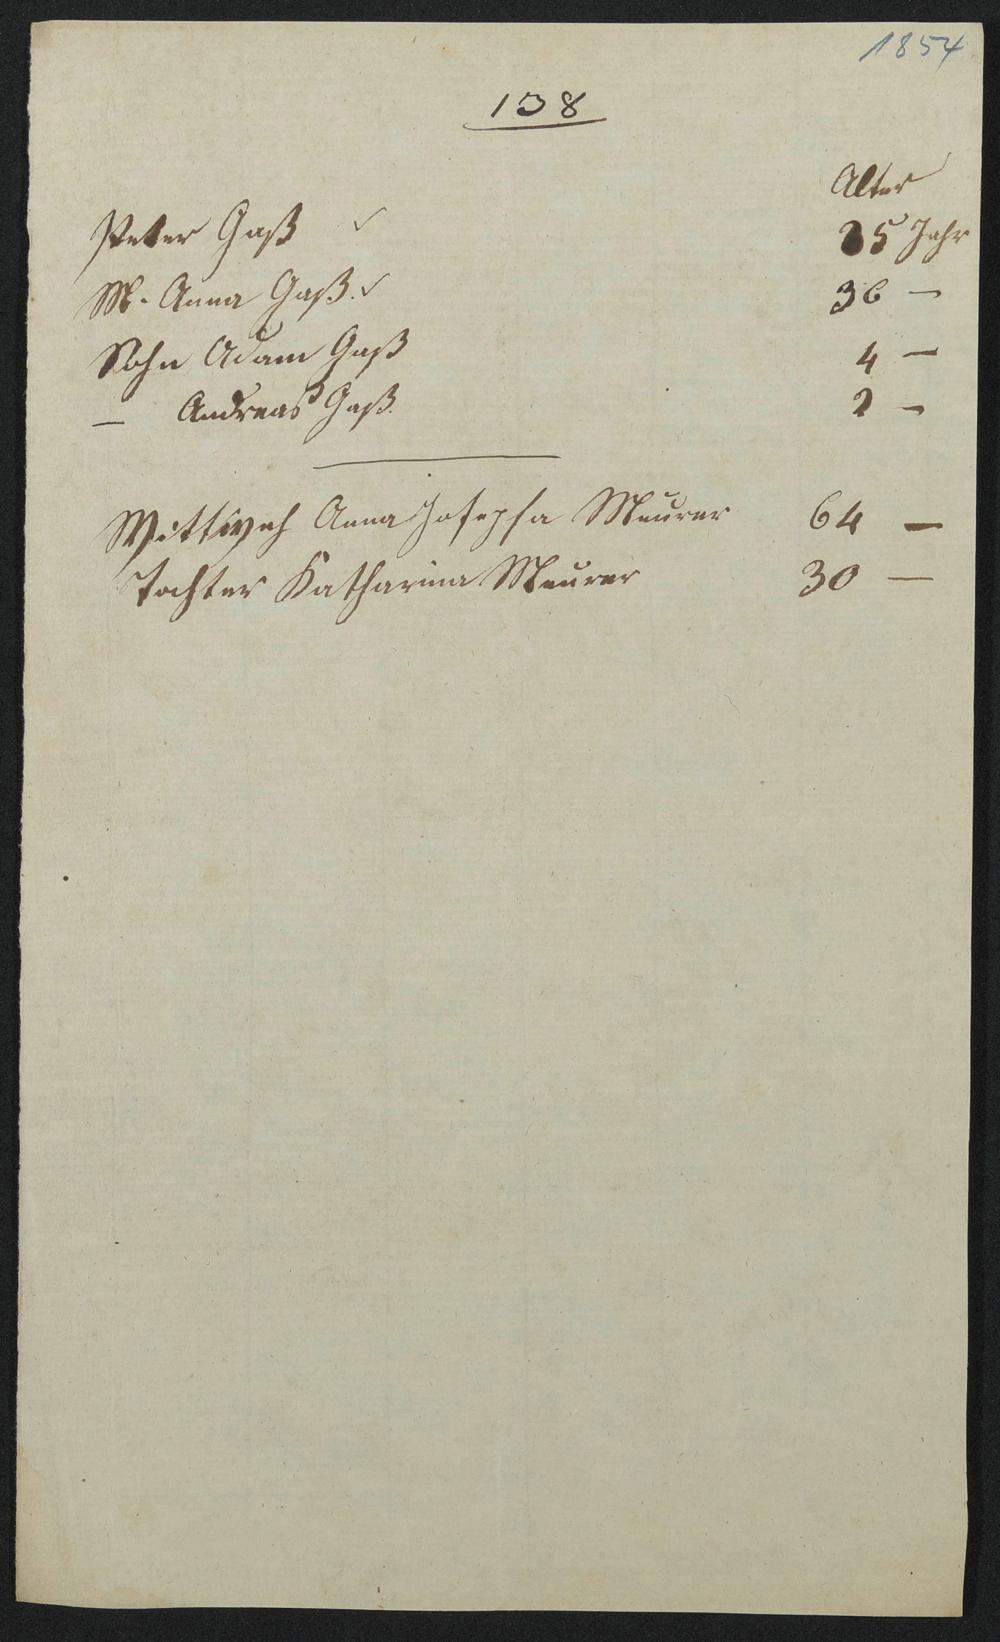 1854
138
Alter
Peter Gaß ✓ 35 Jahr
M. Anna Gaß. ✓ 36 —
Sohn Adam Gaß 4 —
— Andreas Gaß. 2 —
Anna Josepha Meurer 64 —
Tochter Katharina Meurer 30 —